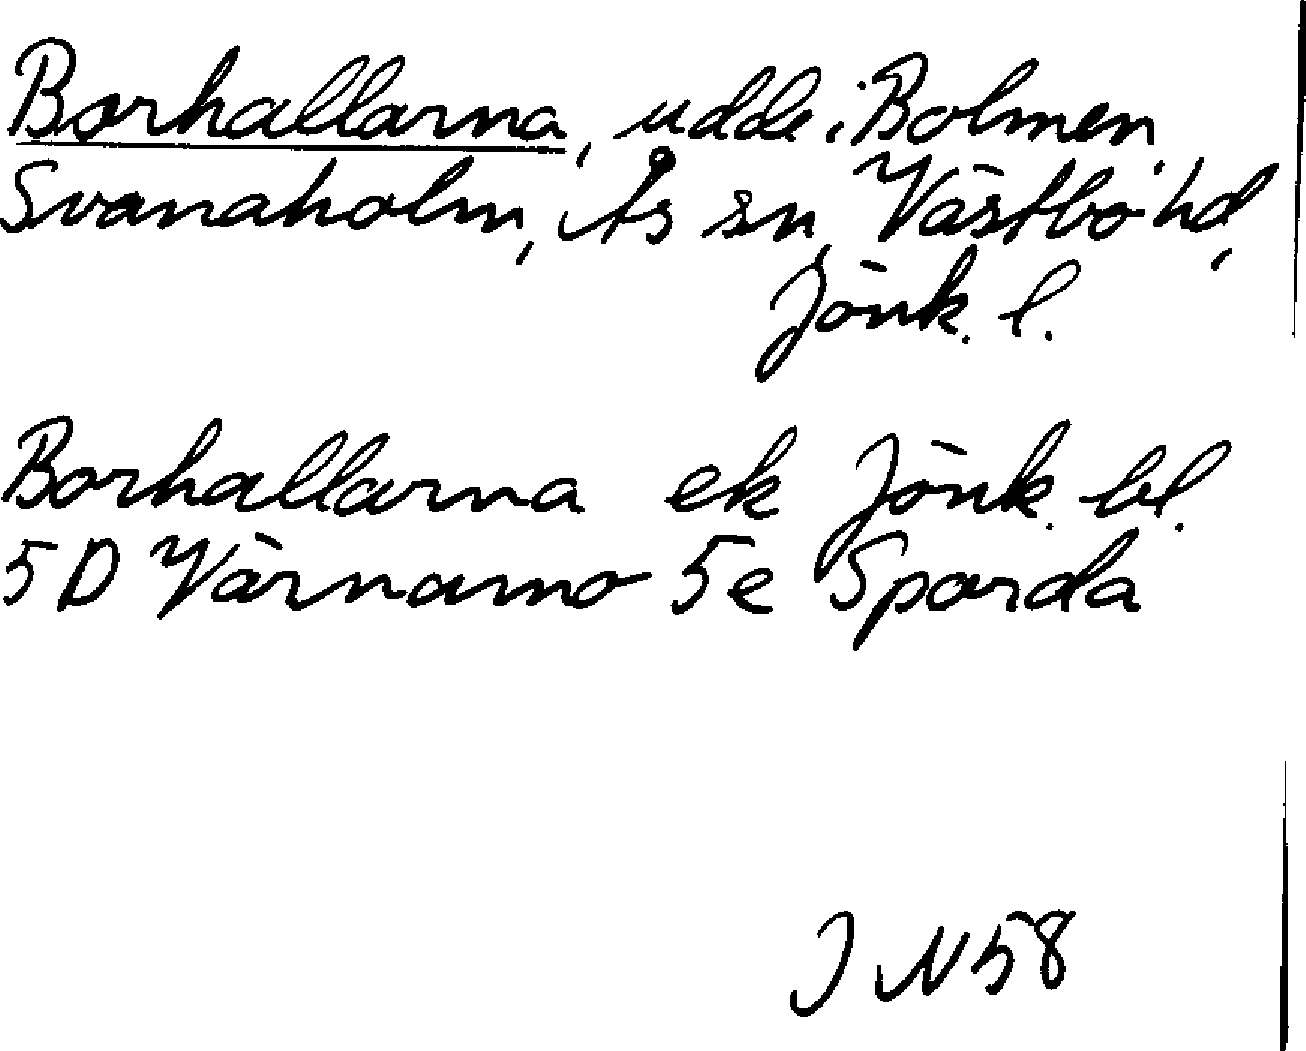 Borhallarna, udde i Bolmen,
Svanaholm, Ås sn, Västbo hd,
Jönk. l.
Borhallarna ek Jönk. bl.
5D Värnamo 5e Sporda
J N 58